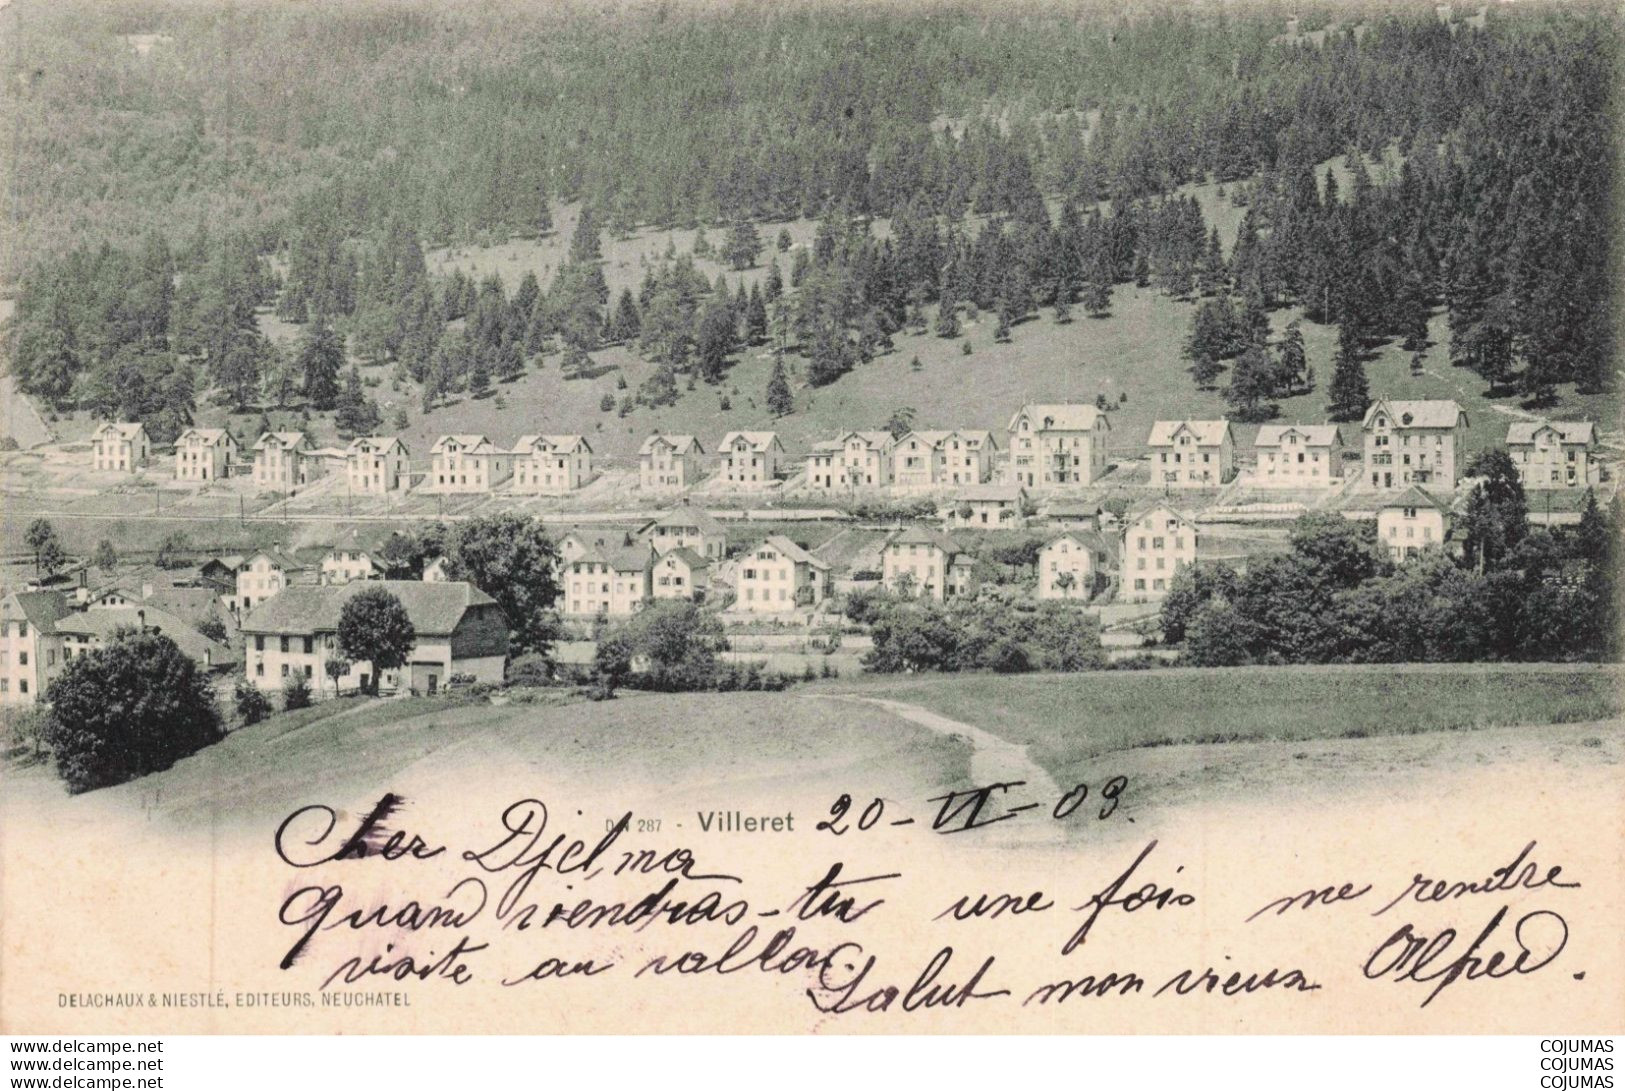 D.N 287 - Villeret 20-VI-03.
Cher Djelma
Quand viendras-tu une fois me rendre
visite au vallon. Salut mon vieux Alfred.
DELACHAUX & NIESTLÉ, EDITEURS, NEUCHATEL
www.delcampe.net COJUMAS
www.delcampe.net COJUMAS
www.delcampe.net COJUMAS